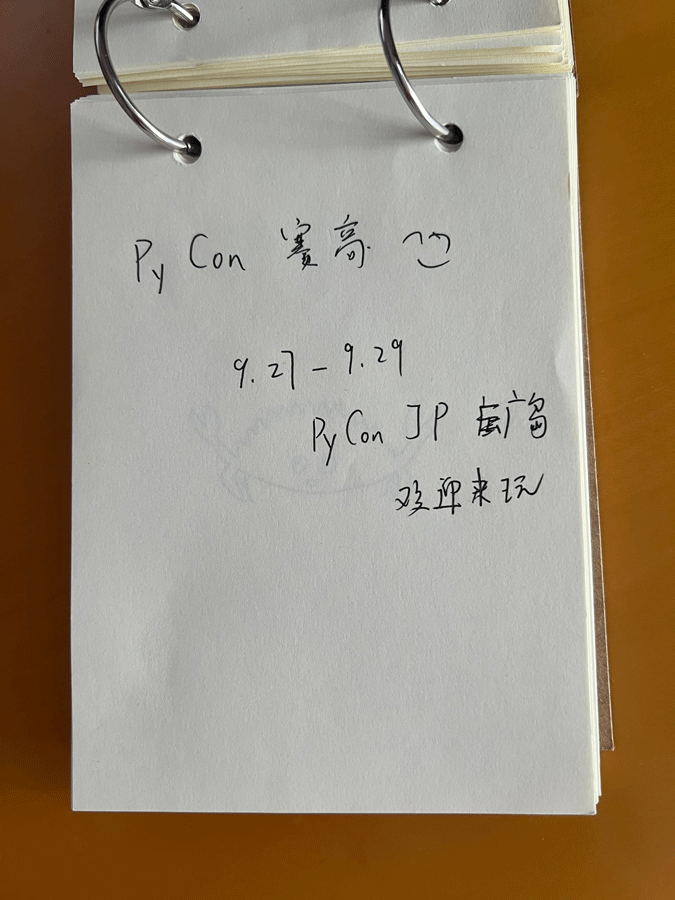 PyCon 賽高
9.27-9.29
PyCon JP 广岛
欢迎来玩